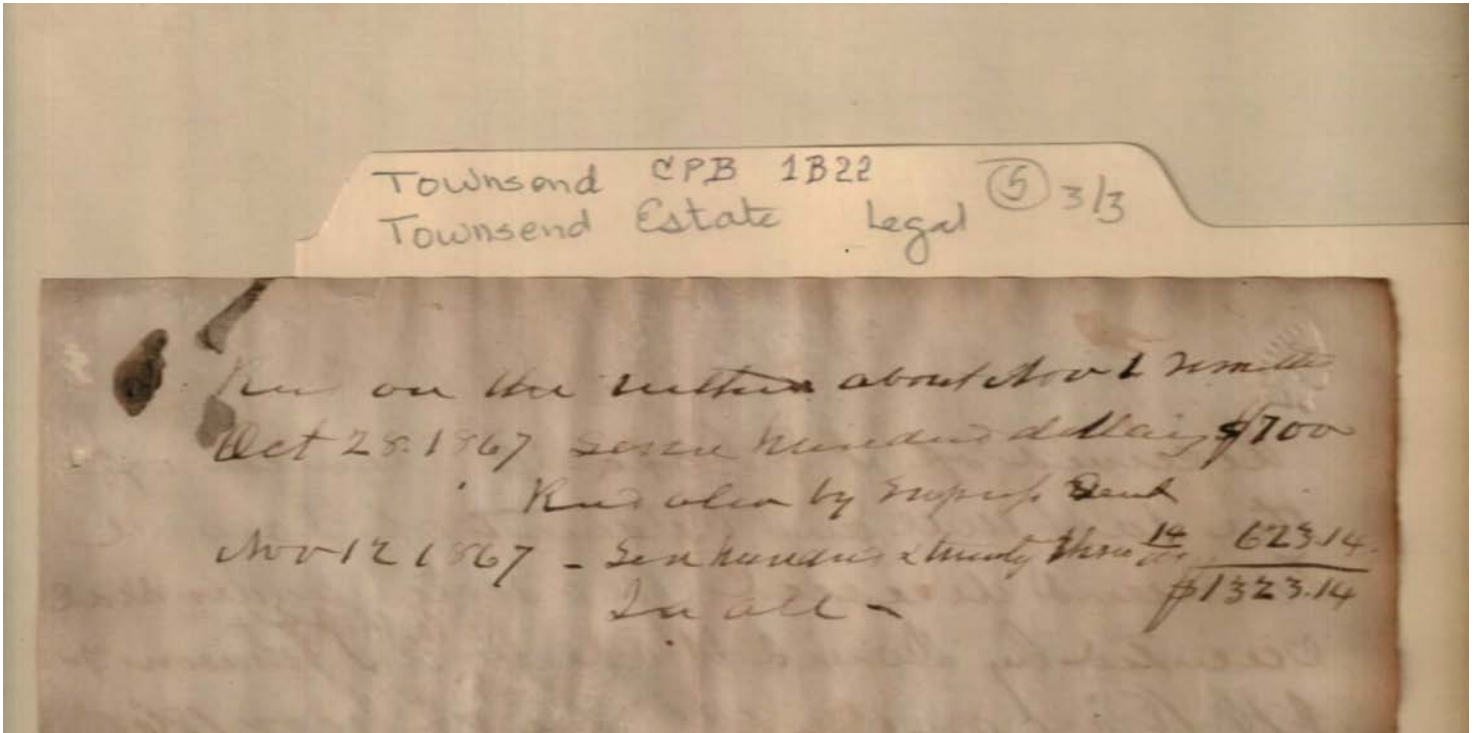 Townsend CPB 1B22
Townsend Estate Legal 5 3/3
Recd on the within about Nov 1
Oct 28. 1867 seven hundred dollars $700
Recd also by Express Dent
Nov 12 1867 - Six hundred & twenty three 14/100 623.14.
In all - $1323.14